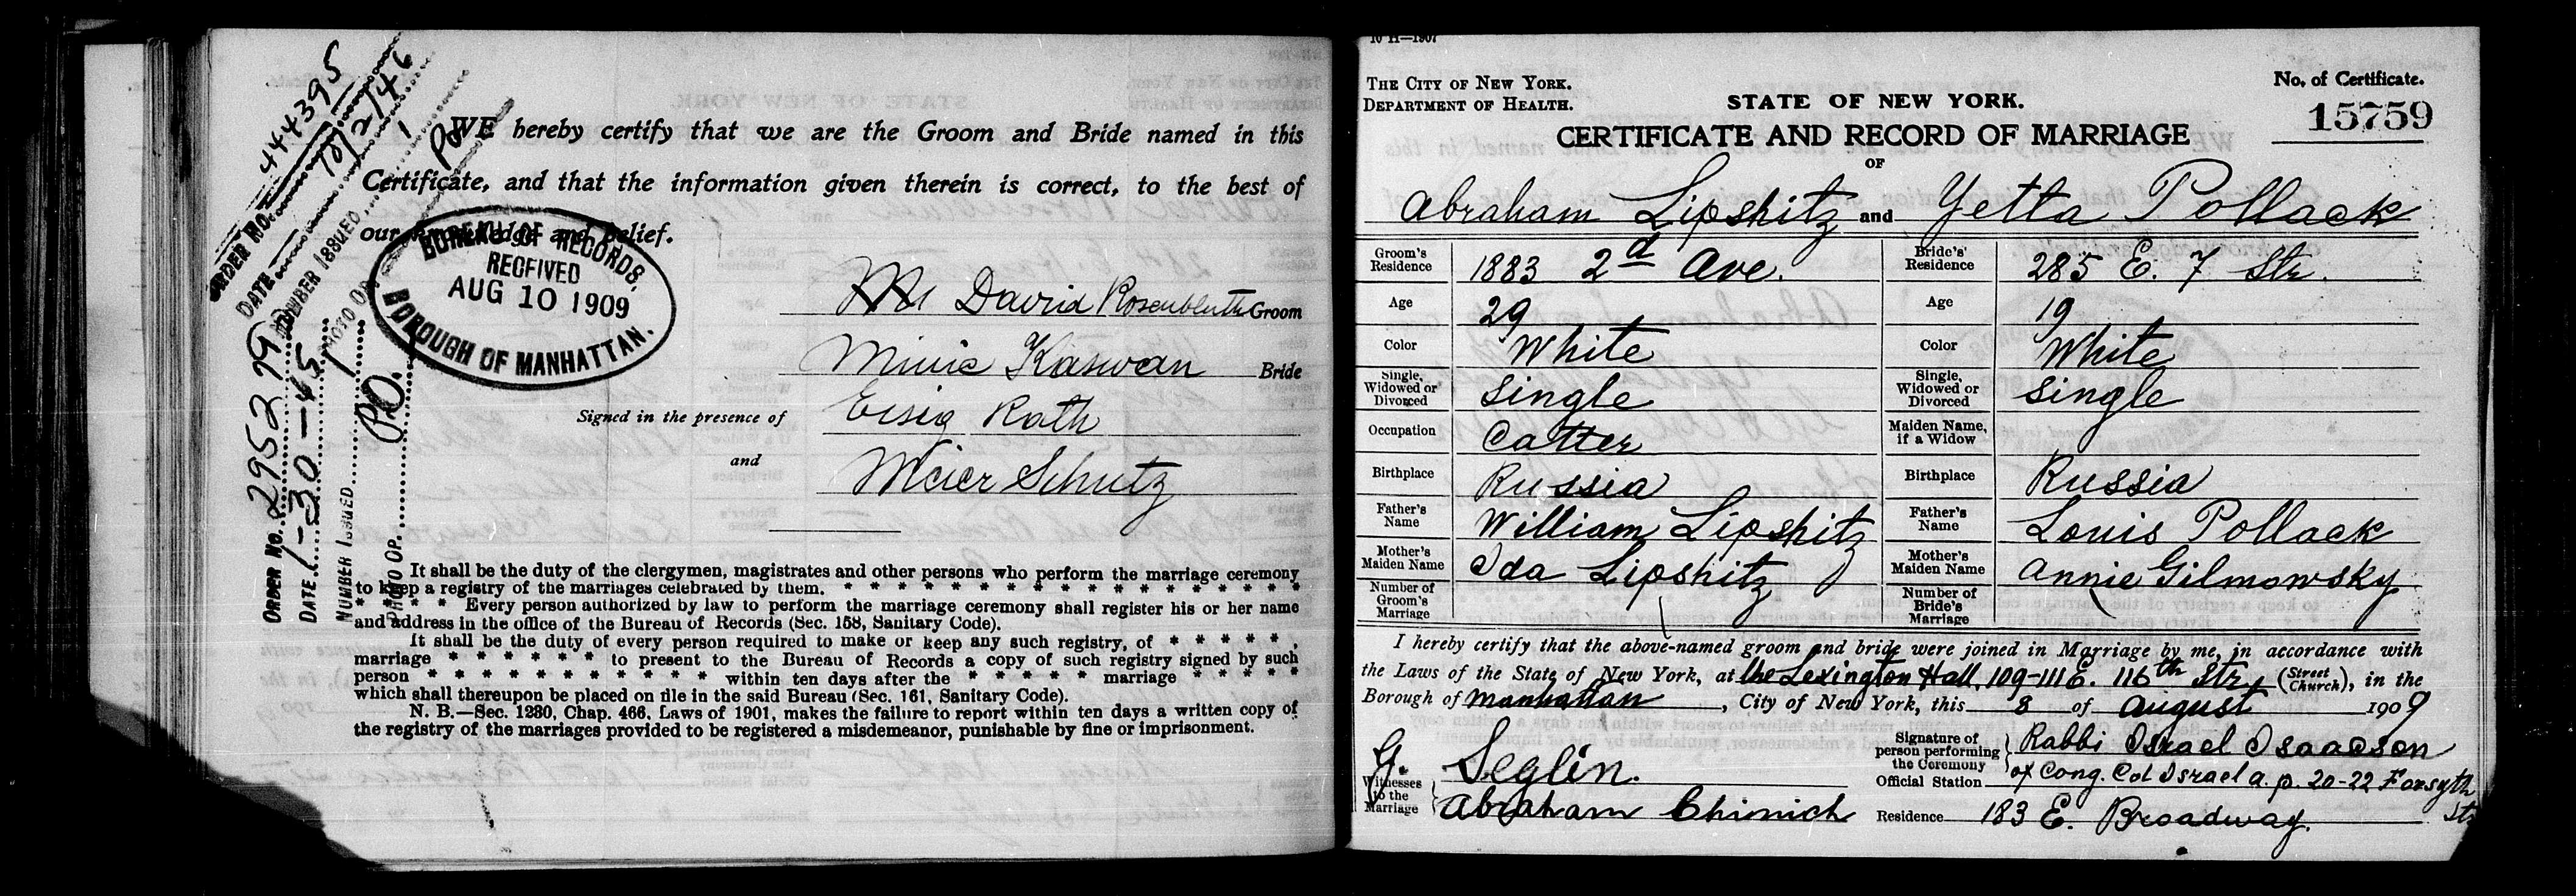 ORDER No. 444395
DATE 10/2/46
NUMBER ISSUED 1
PHOTO OP. PO
ORDER No. 295279
DATE 1-30-45
NUMBER ISSUED 1
PHOTO OP. P.O.
WE hereby certify that we are the Groom and Bride named in this
Certificate, and that the information given therein is correct, to the best of
our knowledge and belief.
BUREAU OF RECORDS.
RECEIVED
AUG 10 1909
BOROUGH OF MANHATTAN.
David Rosenbluth Groom
Minie Kaswan Bride
Signed in the presence of Eisig Rath
and Meier Schutz
It shall be the duty of the clergymen, magistrates and other persons who perform the marriage ceremony
to keep a registry of the marriages celebrated by them. * * * * * * * * * * * * * * *
* * * * Every person authorized by law to perform the marriage ceremony shall register his or her name
and address in the office of the Bureau of Records (Sec. 158, Sanitary Code).
It shall be the duty of every person required to make or keep any such registry, of * * * * * ,
marriage * * * * * * to present to the Bureau of Records a copy of such registry signed by such
person * * * * * * * * * * within ten days after the * * * * * marriage * * * * *
which shall thereupon be placed on file in the said Bureau (Sec. 161, Sanitary Code).
N. B.—Sec. 1280, Chap. 466, Laws of 1901, makes the failure to report within ten days a written copy of
the registry of the marriages provided to be registered a misdemeanor, punishable by fine or imprisonment.
10 H—1907
THE CITY OF NEW YORK.
DEPARTMENT OF HEALTH.
STATE OF NEW YORK.
No. of Certificate.
15759
CERTIFICATE AND RECORD OF MARRIAGE
OF
Abraham Lipshitz and Yetta Pollack
Groom's Residence 1883 2d Ave. Bride's Residence 285 E. 7 Str.
Age 29 Age 19
Color White Color White
Single, Widowed or Divorced Single Single, Widowed or Divorced Single
Occupation Catter Maiden Name, if a Widow
Birthplace Russia Birthplace Russia
Father's Name William Lipshitz Father's Name Louis Pollack
Mother's Maiden Name Ida Lipshitz Mother's Maiden Name Annie Gilmowsky
Number of Groom's Marriage Number of Bride's Marriage
I hereby certify that the above-named groom and bride were joined in Marriage by me, in accordance with
the Laws of the State of New York, at the Lexington Hall, 109-111 E. 116th Str. (Street Church), in the
Borough of Manhattan, City of New York, this 8 of August 1909
Signature of person performing the Ceremony Rabbi Israel Isaacson
G. Seglin.
Official Station of Cong. Col Israel a. p. 20-22 Forsyth St.
Witnesses to the Marriage Abraham Chimich
Residence 183 E. Broadway.